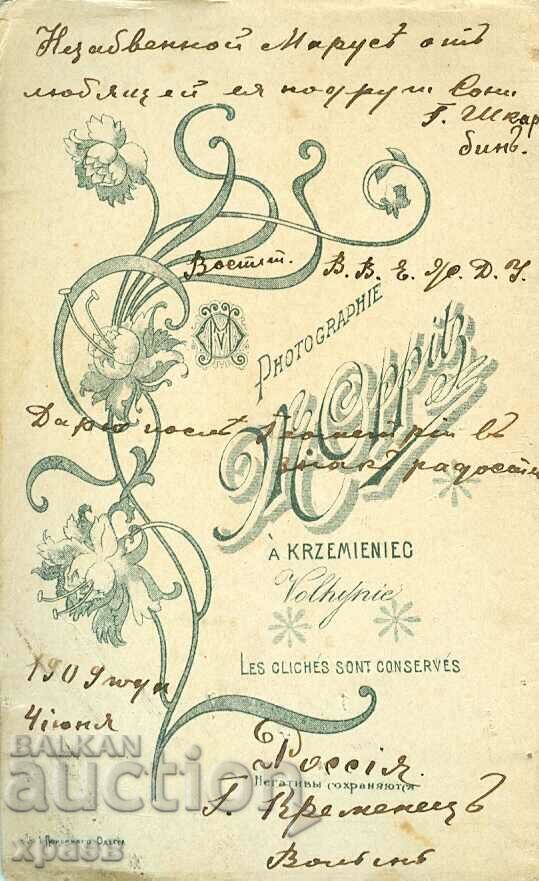 Незабвенной Марусѣ отъ
любящей ея подруги Сони
Г. Шкар
бинъ.
Воспит. В. В. Е. Ж. Д. У.
PHOTOGRAPHIE
M. Oppitz
Дарю послѣ Геометріи въ
знакъ радости
À KRZEMIENIEC
Volhynie
LES CLICHÉS SONT CONSERVÉS
1909 года
4 іюня
Россія.
Негативы сохраняются
Г. Кременецъ
Волынь
BALKAN
auction
хразв
Одесса